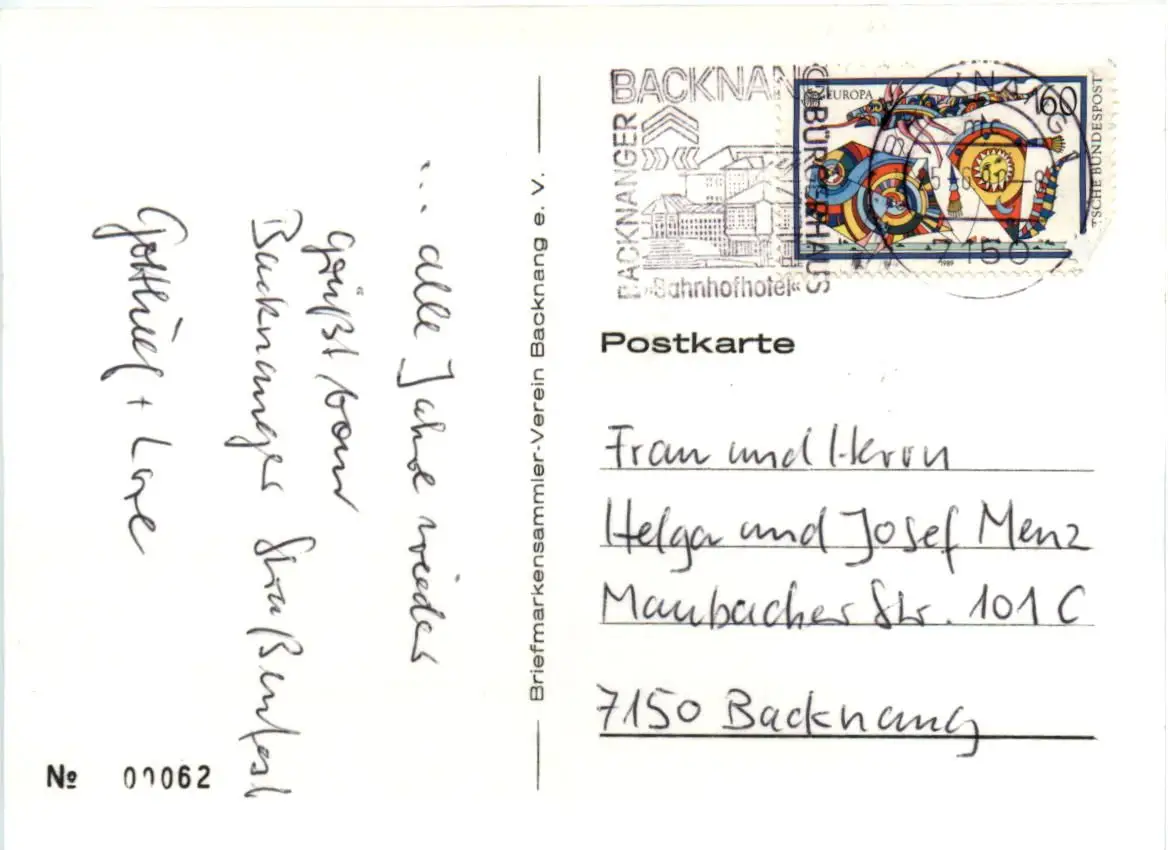 ... alle Jahre wieder
grüßt vom
Backnanger Straßenfest
Gotthilf + Lore
Nº 00062
Briefmarkensammler-Verein Backnang e. V.
BACKNANG
BACKNANGER
BÜRGERHAUS
»Bahnhofhotel«
EUROPA
160
DEUTSCHE BUNDESPOST
1989
BACKNANG
mc
7150
Postkarte
Frau und Herrn
Helga und Josef Menz
Maubacher Str. 101 C
7150 Backnang